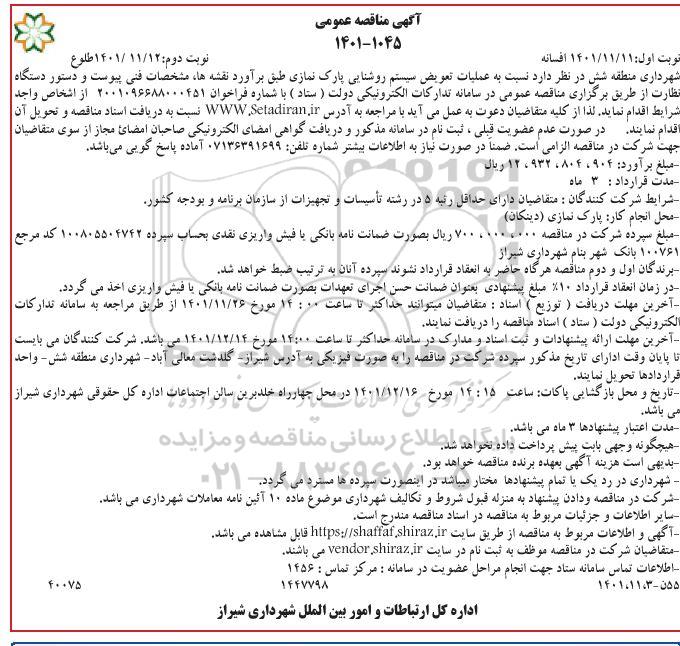 آگهی مناقصه عمومی
۱۴۰۱-۱۰۴۵
نوبت اول:۱۴۰۱/۱۱/۱۱ افسانه نوبت دوم:۱۴۰۱/ ۱۱/۱۲طلوع
شهرداری منطقه شش در نظر دارد نسبت به عملیات تعویض سیستم روشنایی پارک نمازی طبق برآورد نقشه ها، مشخصات فنی پیوست و دستور دستگاه
نظارت از طریق برگزاری مناقصه عمومی در سامانه تدارکات الکترونیکی دولت ( ستاد ) با شماره فراخوان ۲۰۰۱۰۹۶۶۸۸۰۰۰۴۵۱ از اشخاص واجد
شرایط اقدام نماید. لذا از کلیه متقاضیان دعوت به عمل می آید با مراجعه به آدرس WWW.Setadiran.ir نسبت به دریافت اسناد مناقصه و تحویل آن
اقدام نمایند. در صورت عدم عضویت قبلی ، ثبت نام در سامانه مذکور و دریافت گواهی امضای الکترونیکی صاحبان امضائ مجاز از سوی متقاضیان
جهت شرکت در مناقصه الزامی است. ضمناً در صورت نیاز به اطلاعات بیشتر شماره تلفن: ۰۷۱۳۶۳۹۱۶۹۹ آماده پاسخ گویی می‌باشد.
-مبلغ برآورد: ۹۰۴ ، ۸۰۴ ، ۹۳۲ ، ۱۲ ریال
-مدت قرارداد : ۳ ماه
-شرایط شرکت کنندگان : متقاضیان دارای حداقل رتبه ۵ در رشته تأسیسات و تجهیزات از سازمان برنامه و بودجه کشور.
-محل انجام کار: پارک نمازی (دینکان)
-مبلغ سپرده شرکت در مناقصه ۰۰۰ ، ۰۰۰ ، ۷۰۰ ریال بصورت ضمانت نامه بانکی یا فیش واریزی نقدی بحساب سپرده ۱۰۰۸۰۵۵۰۴۷۴۲ کد مرجع
۱۰۰۷۶۱ بانک شهر بنام شهرداری شیراز
-برندگان اول و دوم مناقصه هرگاه حاضر به انعقاد قرارداد نشوند سپرده آنان به ترتیب ضبط خواهد شد.
-در زمان انعقاد قرارداد ۱۰٪ مبلغ پیشنهادی بعنوان ضمانت حسن اجرای تعهدات بصورت ضمانت نامه بانکی یا فیش واریزی اخذ می گردد.
-آخرین مهلت دریافت ( توزیع ) اسناد : متقاضیان میتوانند حداکثر تا ساعت ۰۰ : ۱۴ مورخ ۱۴۰۱/۱۱/۲۶ از طریق مراجعه به سامانه تدارکات
الکترونیکی دولت ( ستاد ) اسناد مناقصه را دریافت نمایند.
-آخرین مهلت ارائه پیشنهادات و ثبت اسناد و مدارک در سامانه حداکثر تا ساعت ۱۴:۰۰ مورخ ۱۴۰۱/۱۲/۱۴ می باشد. شرکت کنندگان می بایست
تا پایان وقت ادارای تاریخ مذکور سپرده شرکت در مناقصه را به صورت فیزیکی به آدرس شیراز- گلدشت معالی آباد- شهرداری منطقه شش- واحد
قراردادها تحویل نمایند.
-تاریخ و محل بازگشایی پاکات: ساعت ۱۵ : ۱۴ مورخ ۱۴۰۱/۱۲/۱۶ در محل چهارراه خلدبرین سالن اجتماعات اداره کل حقوقی شهرداری شیراز
می باشد.
-مدت اعتبار پیشنهادها ۳ ماه می باشد.
-هیچگونه وجهی بابت پیش پرداخت داده نخواهد شد.
-بدیهی است هزینه آگهی بعهده برنده مناقصه خواهد بود.
- شهرداری در رد یک یا تمام پیشنهادها مختار میباشد در اینصورت سپرده ها مسترد می گردد.
-شرکت در مناقصه ودادن پیشنهاد به منزله قبول شروط و تکالیف شهرداری موضوع ماده ۱۰ آئین نامه معاملات شهرداری می باشد.
-سایر اطلاعات و جزئیات مربوط به مناقصه در اسناد مناقصه مندرج است.
-آگهی و اطلاعات مربوط به مناقصه از طریق سایت https://shaffaf.shiraz.ir قابل مشاهده می باشد.
-متقاضیان شرکت در مناقصه موظف به ثبت نام در سایت vendor.shiraz.ir می باشند.
-اطلاعات تماس سامانه ستاد جهت انجام مراحل عضویت در سامانه : مرکز تماس : ۱۴۵۶
۵۵ن-۱۴۰۱،۱۱،۳ ۱۴۴۷۷۹۸ ۴۰۰۷۵
اداره کل ارتباطات و امور بین الملل شهرداری شیراز